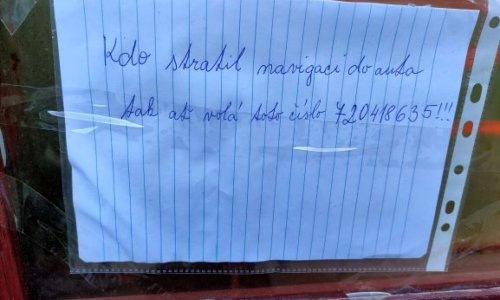 Kdo stratil navigaci do auta
tak ať volá toto číslo 720418635!!!